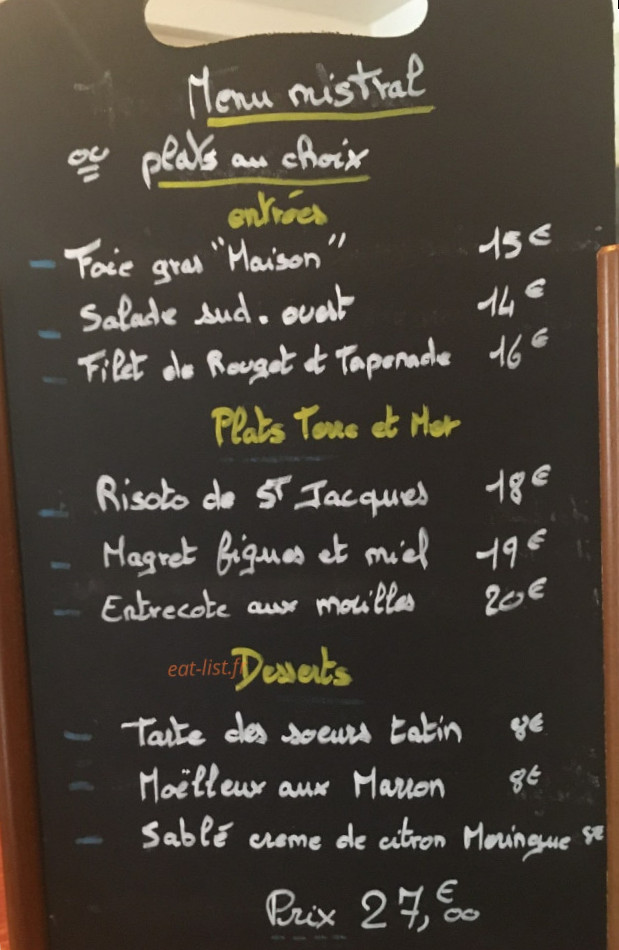 Menu mistral
ou plats au choix
entrées
- Foie gras "Maison" 15€
- Salade sud. ouest 14€
- Filet de Rouget et Tapenade 16€
Plats Terre et Mer
- Risoto de ST Jacques 18€
- Magret figues et miel 19€
- Entrecote aux morilles 20€
eat-list.fr
Desserts
- Tarte des soeurs tatin 8€
- Moëlleux aux Marron 8€
- Sablé creme de citron Meringue 8€
Prix 27,€00